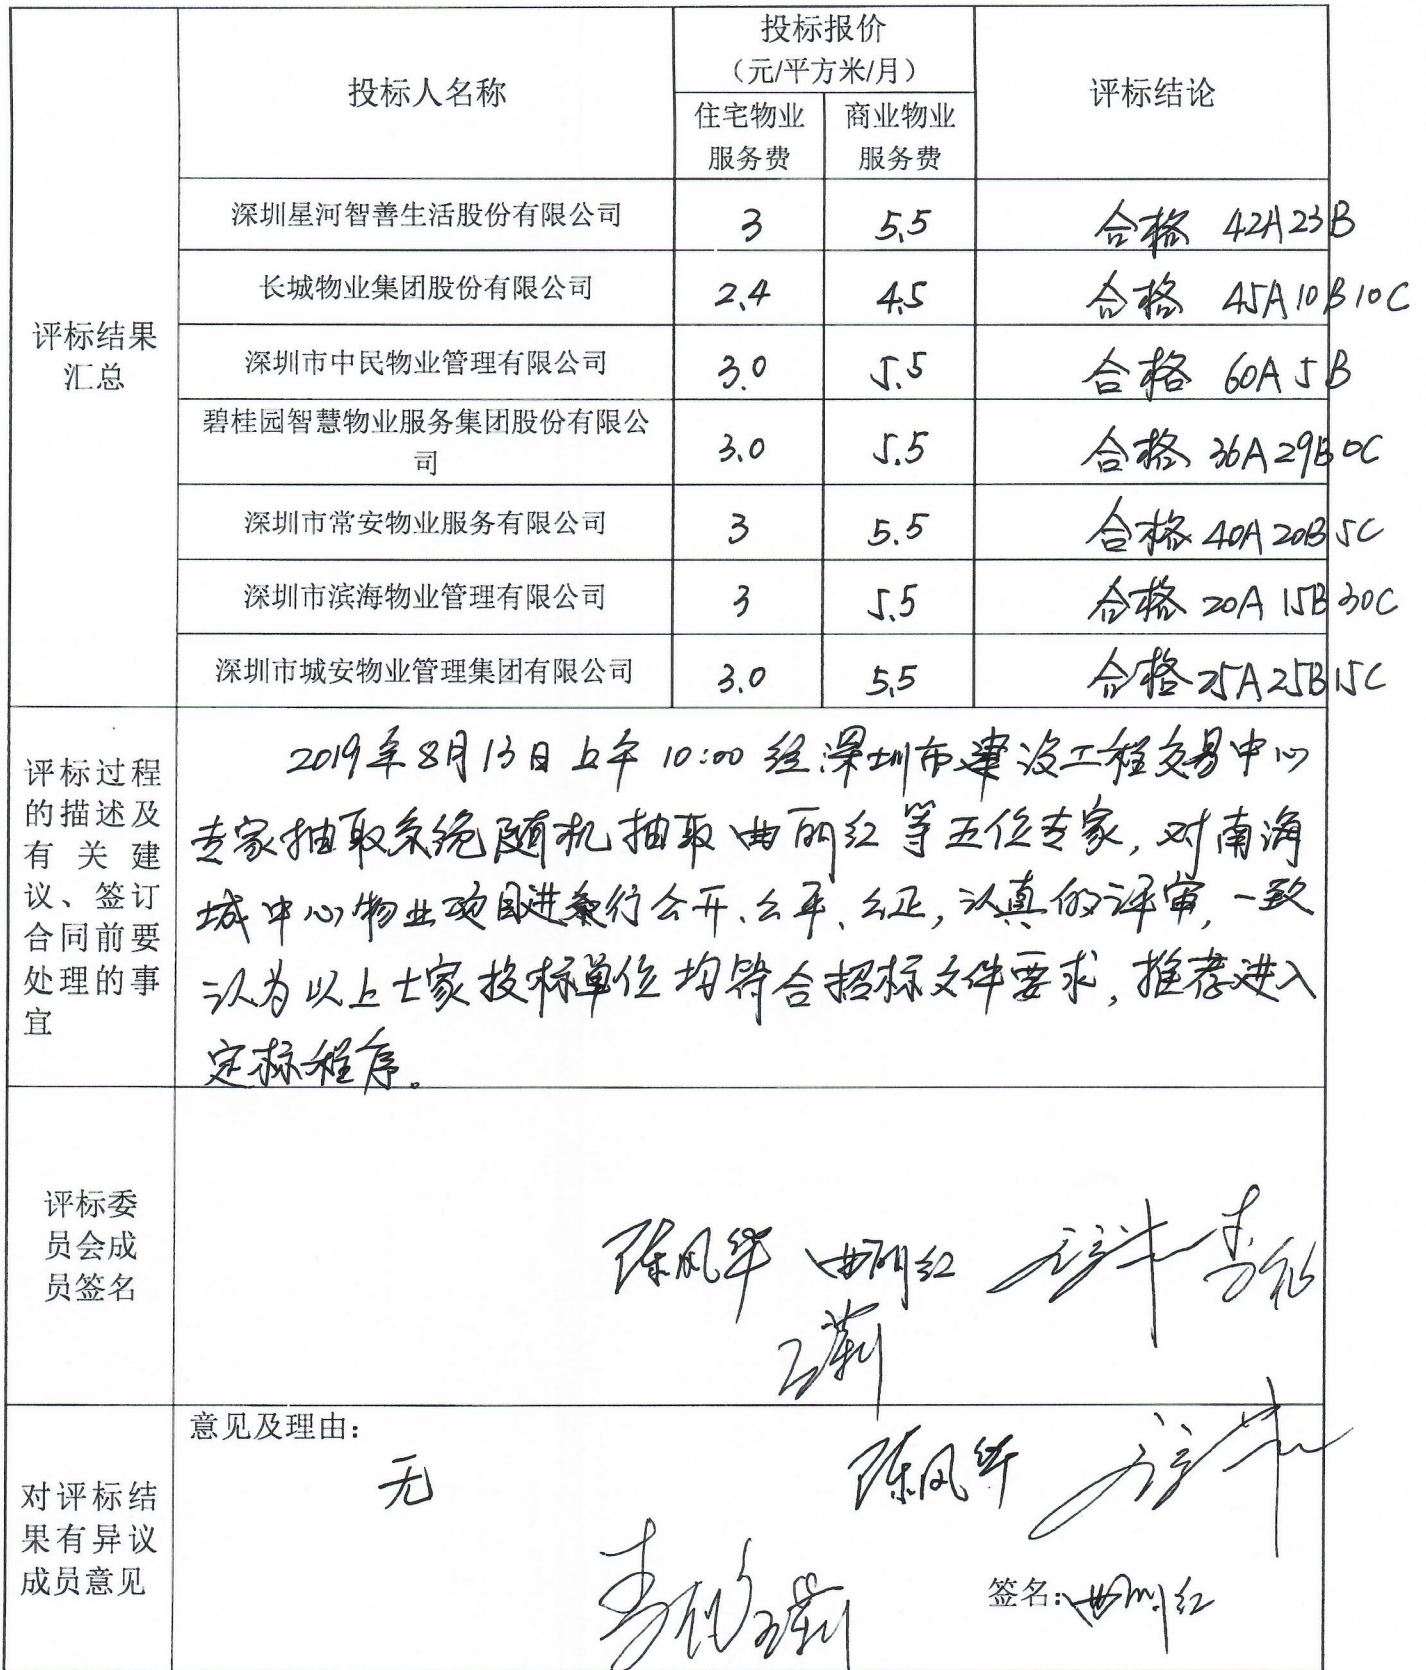 投标人名称
投标报价
（元/平方米/月）
评标结论
住宅物业
服务费
商业物业
服务费
评标结果
汇总
深圳星河智善生活股份有限公司 3 5.5 合格 42A23B
长城物业集团股份有限公司 2.4 4.5 合格 45A10B10C
深圳市中民物业管理有限公司 3.0 5.5 合格 60A5B
碧桂园智慧物业服务集团股份有限公
司 3.0 5.5 合格 36A29B0C
深圳市常安物业服务有限公司 3 5.5 合格 40A20B5C
深圳市滨海物业管理有限公司 3 5.5 合格 20A15B30C
深圳市城安物业管理集团有限公司 3.0 5.5 合格 25A25B15C
评标过程
的描述及
有关建
议、签订
合同前要
处理的事
宜
2019年8月13日上午10:00经深圳市建设工程交易中心
专家抽取系统随机抽取曲丽红等五位专家,对南海
城中心物业项目进行公开、公平、公正,认真的评审,一致
认为以上七家投标单位均符合招标文件要求,推荐进入
定标程序。
评标委
员会成
员签名
陈凤华 曲丽红
对评标结
果有异议
成员意见
意见及理由：
无
陈凤华
签名：曲丽红